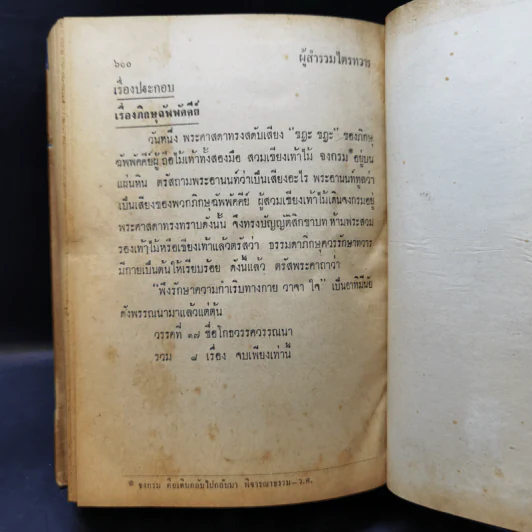 ๖๑๐
ผู้สำรวมไตรทวาร
เรื่องประกอบ
เรื่องภิกษุฉัพพัคคีย์
วันหนึ่ง พระศาสดาทรงสดับเสียง "ขฏะ ขฏะ" ของภิกษุ
ฉัพพัคคีย์ผู้ถือไม้เท้าทั้งสองมือ สวมเขียงเท้าไม้ จงกรม*อยู่บน
แผ่นหิน ตรัสถามพระอานนท์ว่าเป็นเสียงอะไร พระอานนท์ทูลว่า
เป็นเสียงของพวกภิกษุฉัพพัคคีย์ ผู้สวมเขียงเท้าไม้เดินจงกรมอยู่
พระศาสดาทรงทราบดังนั้น จึงทรงบัญญัติสิกขาบท ห้ามพระสวม
รองเท้าไม้หรือเขียงเท้าแล้วตรัสว่า ธรรมดาภิกษุควรรักษาทวาร
มีกายเป็นต้นให้เรียบร้อย ดังนี้แล้ว ตรัสพระคาถาว่า
"พึงรักษาความกำเริบทางกาย วาจา ใจ" เป็นอาทิมีนัย
ดังพรรณนามาแล้วแต่ต้น
วรรคที่ ๑๗ ชื่อโกธวรรควรรณนา
รวม ๘ เรื่อง จบเพียงเท่านี้
* จงกรม คือเดินกลับไปกลับมา พิจารณาธรรม—ว.ศ.